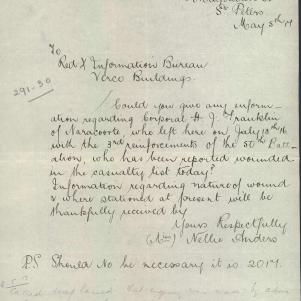 St Peters
May 8th 17
To
Red X Information Bureau
Verco Buildings.
291-30
Could you give any inform-
ation regarding Corporal H. J. Franklin
of Naracoorte, who left here on July 10th 16
with the 3rd reinforcements of the 50th Batt-
alion, who has been reported wounded
in the casualty list today?
Information regarding nature of wound
& where stationed at present will be
thankfully received by
Yours Respectfully
(Mrs) Nellie Anders
P.S Should No be necessary it is 2017.